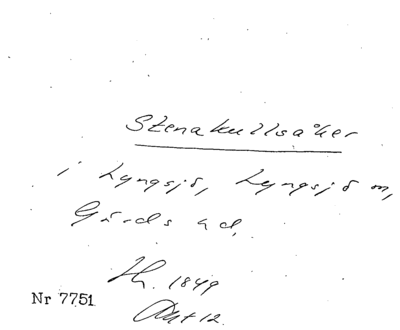 Stenakullsåker
i Lyngsjö, Lyngsjö sn,
Gärds hd.
Th. 1849
Nr 7751
Akt 12.